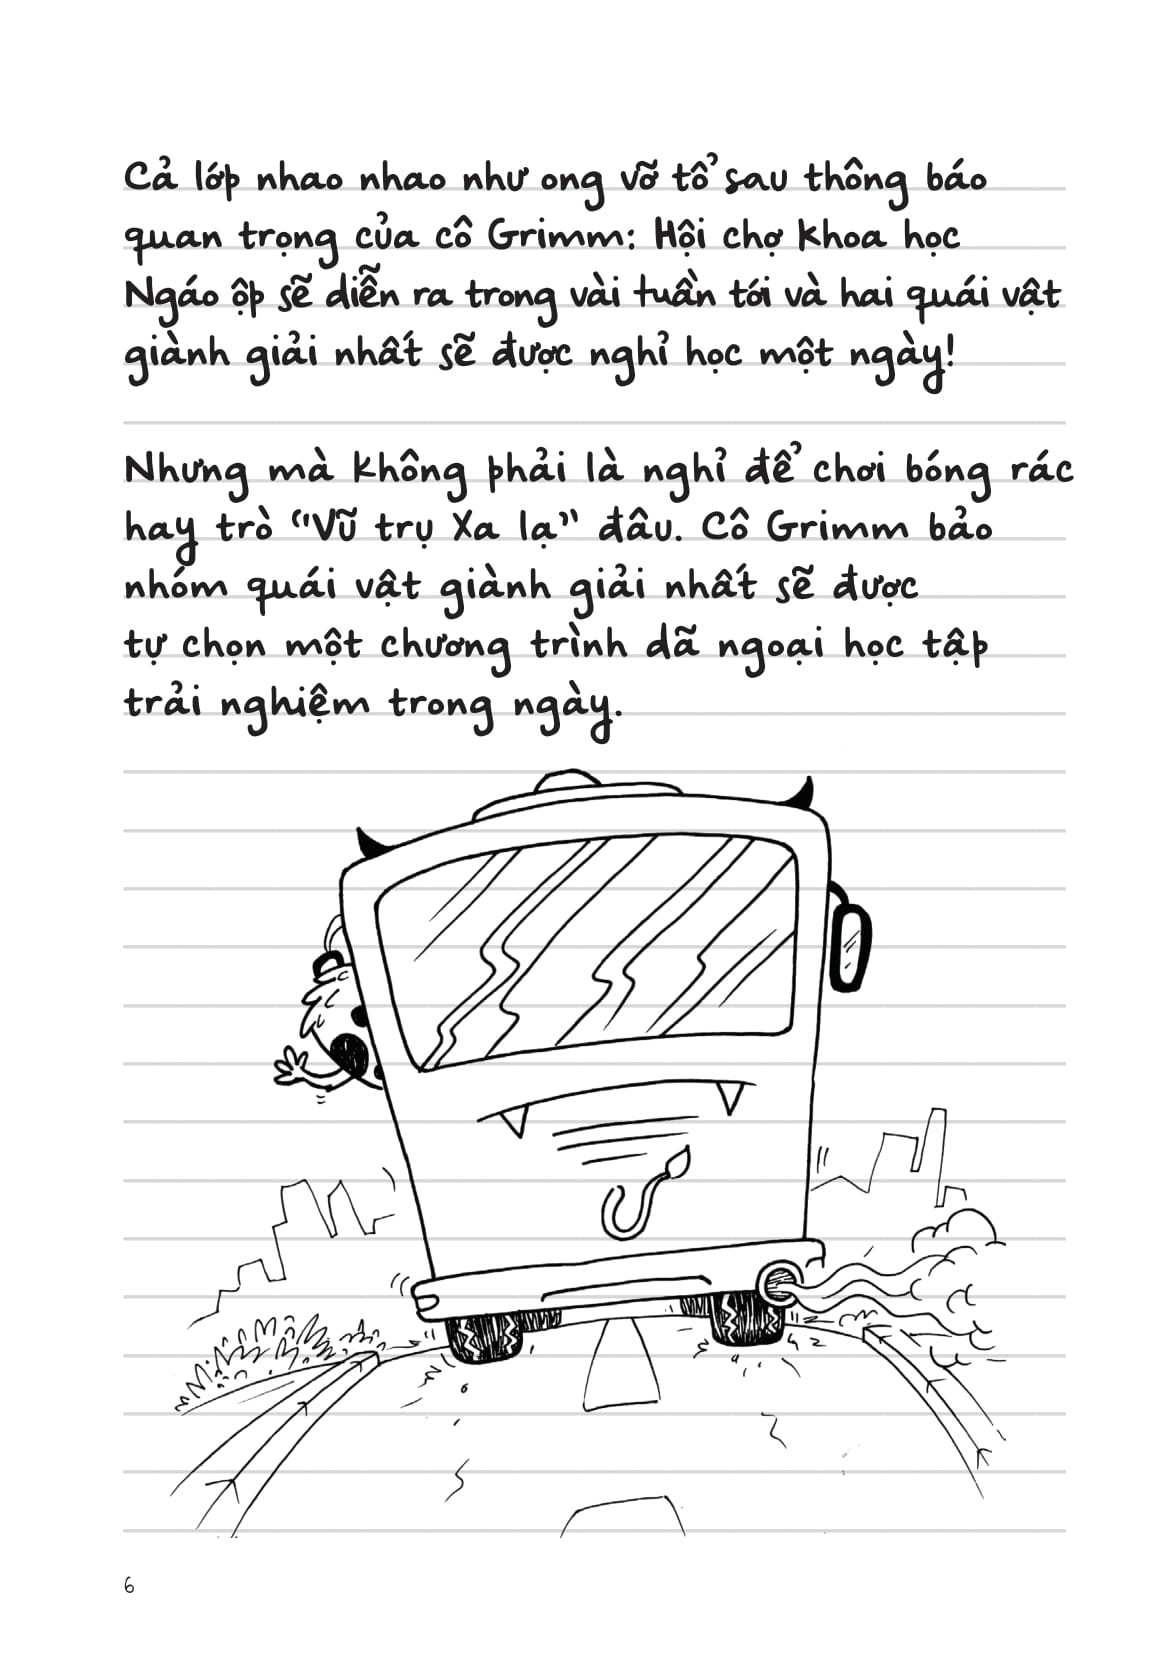 Cả lớp nhao nhao như ong vỡ tổ sau thông báo
quan trọng của cô Grimm: Hội chợ Khoa học
Ngáo ộp sẽ diễn ra trong vài tuần tới và hai quái vật
giành giải nhất sẽ được nghỉ học một ngày!
Nhưng mà không phải là nghỉ để chơi bóng rác
hay trò “Vũ trụ Xa lạ” đâu. Cô Grimm bảo
nhóm quái vật giành giải nhất sẽ được
tự chọn một chương trình dã ngoại học tập
trải nghiệm trong ngày.
6